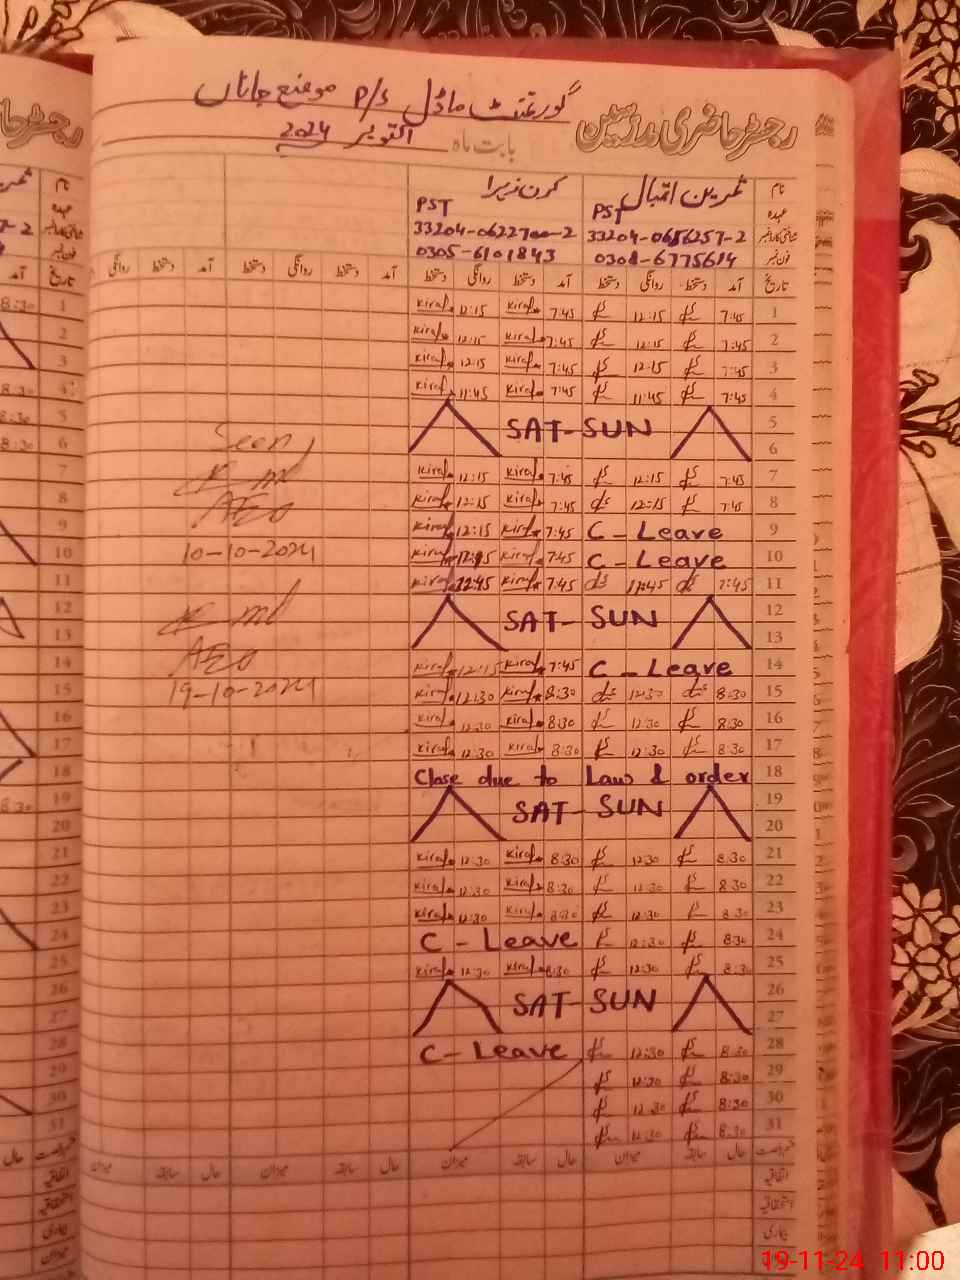 رجسٹر حاضری مدرسین گورنمنٹ ماڈل P/S موضع جاناں
بابت ماہ اکتوبر 2024
نام ثمرین اقبال کرن زہرا
عہدہ PST PST
شناختی کارڈ نمبر 33204-0656257-2 33204-0622700-2
فون نمبر 0308-6775614 0305-6101843
تاریخ آمد دستخط روانگی دستخط آمد دستخط روانگی دستخط آمد دستخط روانگی دستخط آمد دستخط روانگی
1 7:45 12:15 7:45 Kiran 12:15 Kiran
2 7:45 12:15 7:45 Kiran 12:15 Kiran
3 7:45 12:15 7:45 Kiran 12:15 Kiran
4 7:45 11:45 7:45 Kiran 11:45 Kiran
5
SAT-SUN
6
7 7:45 12:15 7:45 Kiran 12:15 Kiran
8 7:45 12:15 7:45 Kiran 12:15 Kiran
9 C-Leave 7:45 Kiran 12:15 Kiran
10 C-Leave 7:45 Kiran 12:15 Kiran
11 7:45 11:45 7:45 Kiran 12:45 Kiran
12
SAT-SUN
13
14 C-Leave 7:45 Kiran 12:15 Kiran
15 8:30 12:30 8:30 Kiran 12:30 Kiran
16 8:30 12:30 8:30 Kiran 12:30 Kiran
17 8:30 12:30 8:30 Kiran 12:30 Kiran
18 Close due to Law & order
19
SAT-SUN
20
21 8:30 12:30 8:30 Kiran 12:30 Kiran
22 8:30 12:30 8:30 Kiran 12:30 Kiran
23 8:30 12:30 8:30 Kiran 12:30 Kiran
24 8:30 12:30 C-Leave
25 8:30 12:30 8:30 Kiran 12:30 Kiran
26
SAT-SUN
27
28 8:30 12:30 C-Leave
29 8:30 12:30
30 8:30 12:30
31 8:30 12:30
قسم رخصت حال سابقہ میزان حال سابقہ میزان حال سابقہ میزان حال سابقہ میزان
اتفاقیہ
استحقاقیہ
بیماری
میزان
Seen
AEO
10-10-2024
AEO
19-10-2024
19-11-24 11:00